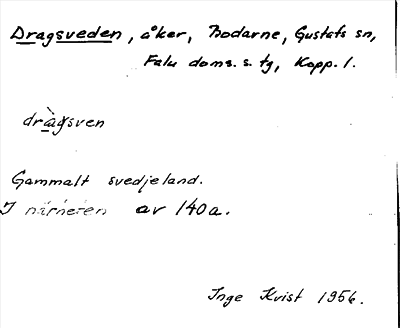 Dragsveden, åker, Bodarne, Gustafs sn,
Falu doms. s. tg, Kopp. l.
dràgsven
Gammalt svedjeland.
I närheten av 140a.
Inge Kvist 1956.